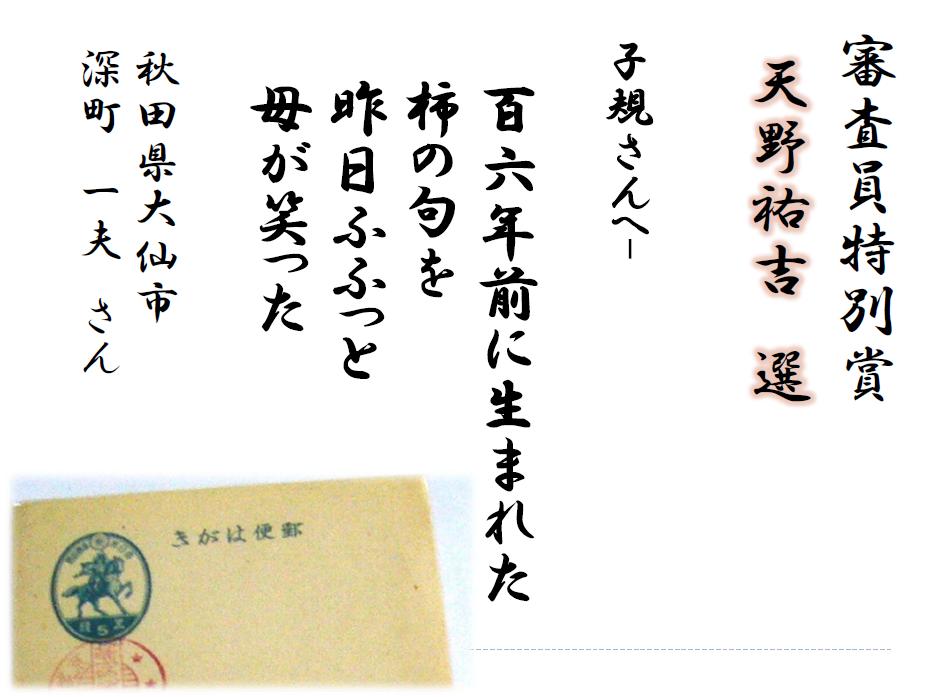 審査員特別賞
天野祐吉　選
子規さんへー
百六年前に生まれた
柿の句を
昨日ふふっと
母が笑った
秋田県大仙市
深町　一夫　さん
きがは便郵
5